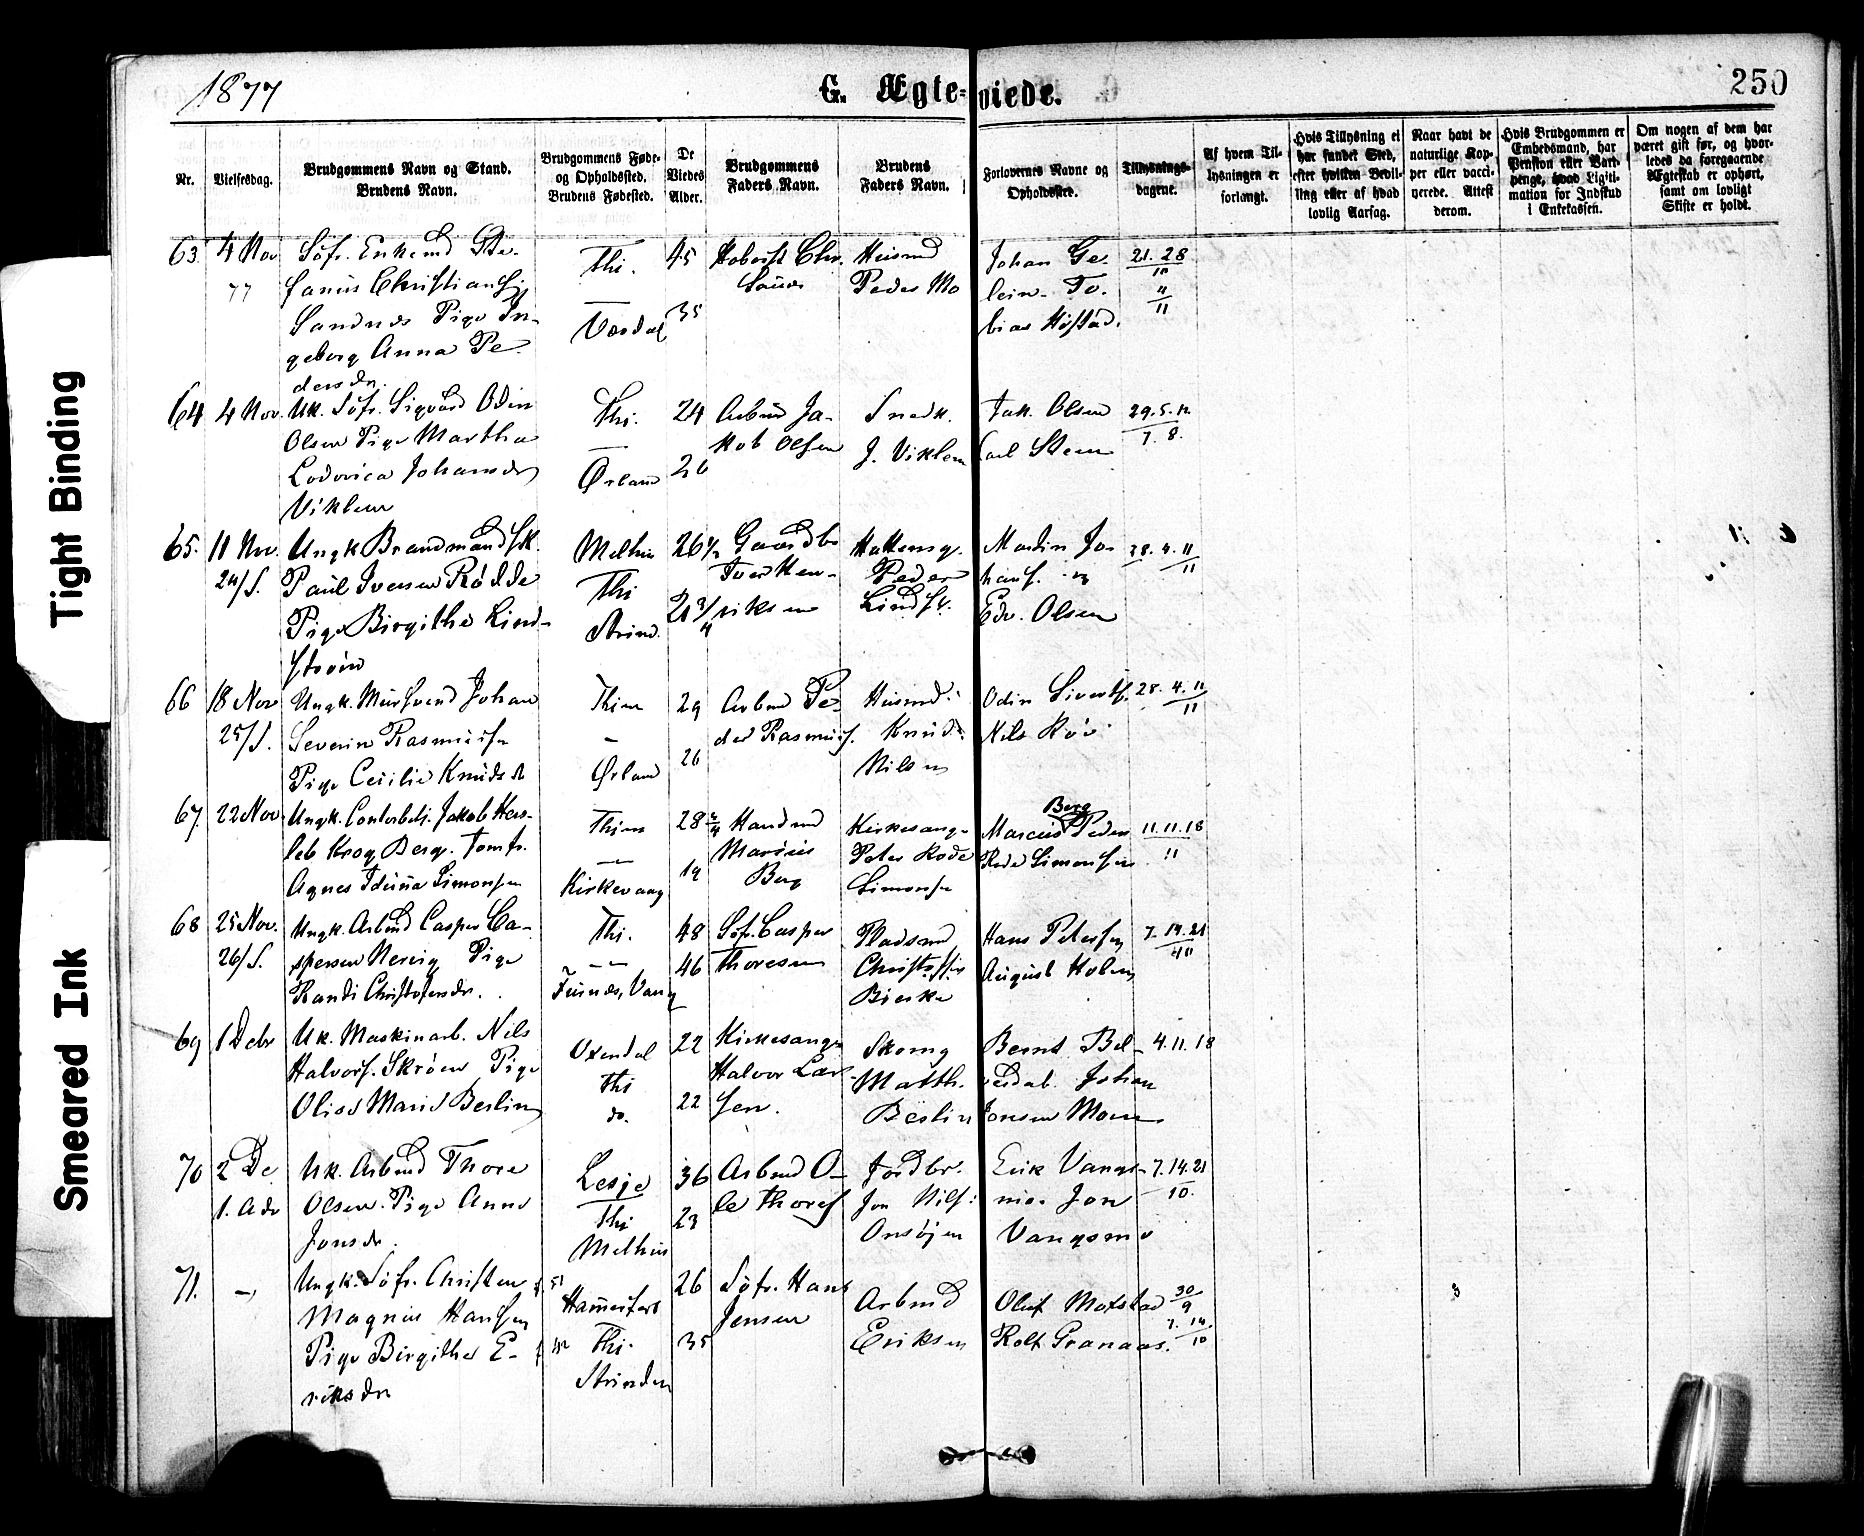 1877
G. Ægte-viede.
250
Tight Binding
Smeared Ink
Nr.
Vielsesdag.
Brudgommens Navn og Stand.
Brudens Navn.
Brudgommens Føde-
og Opholdssted.
Brudens Fødested.
De
Viedes
Alder.
Brudgommens
Faders Navn.
Brudens
Faders Navn.
Forlovernes Navne og
Opholdssted.
Tillysnings-
dagene.
Af hvem Til-
lysningen er
forlangt.
Hvis Tillysning ei
har fundet Sted,
efter hvilken Bevil-
ling eller af hvad
lovlig Aarsag.
Naar havt de
naturlige Kop-
per eller vacci-
nerede. Attest
derom.
Hvis Brudgommen er
Embedsmand, har
Pension eller Vart-
penge, hvad Legiti-
mation for Indskud
i Enkekassen.
Om nogen af dem har
været gift før, og hvor-
ledes da foregaaende
Ægteskab er ophørt,
samt om lovligt
Skifte er holdt.
63. 4 Nov
77
Søfr. Enkemd Ste-
fanus Christians
Sandnes Pige In-
geborg Anna Pe-
dersdn.
Thi.
Værdal
45
35
Chr.
Husmd
Peder Mo
Johan Ge-
lein. To-
bias Høstad.
21. 28
10
4
11
64 4 Nov.
Uk. Søfr. Sigvard Odin
Olsen Pige Martha
Lodovica Johansdn
Viklem
Thi.
Ørland
24
26
Arbmd Ja-
kob Olsen
Snedk.
J. Viklem
Jak. Olsen
Carl Steen
7. 8.
65. 11 Nov.
24/S.
Ungk Brandmand
Paul Iversen Rødde
Pige Birgithe Lind-
strøm
Melhus
Thi
Strind.
26 1/2
21 3/4
Gaardbr
Iver Hen-
riksen
Peder
Lindstr.
Martin Jo-
hans. og
Edv. Olsen
28. 4. 11
11
66 18 Nov
25/S.
Ungk. Mursvend Johan
Severin Rasmussn
Pige Cecilie Knudsd
Thjem
Ørland
29
26
Arbmd Pe-
der Rasmuss.
Husmd.
Knud
Nilsen
Odin Sivertsn.
Nils Røv
28. 4. 11
11
67. 22 Nov
Ungk. Contorbetj. Jakob Hers-
leb Krog Berg. Jomfr.
Agnes Iduna Simonsen
Thjem
Kirkevaag
28 3/4
19
Handmd
Marius
Berg
Kirkesang.
Peter Rode
Simonsn
Berg
Marcus Peder
Rode Simonsen
11. 11. 18
11
68 25 Nov.
26/S.
Ungk. Arbmd Casper Ca-
spersen Nervig Pige
Randi Christofersdn.
Thi.
Furnes, Vang
48
46
Søfr. Casper
Thoresen
Pladsmd
Christoffer
Bierke
Hans Petersen
August Holm
7. 14. 21
69 1 Debr
Uk. Maskinarb. Nils
Halvors. Skrøen Pige
Olise Marie Berlin
Oxendal
Thi
do.
22
22
Kirkesang.
Halvor Lar-
sen.
Skomg
Matth.
Berlin
Bernt Bel-
Johan
Jonsen Moen
4. 11. 18
70 2 De
1. Adv
Uk. Arbmd Thore
Olsen. Pige Anne
Jonsdr.
Lesje
Thi
Melhus
36
23
Arbmd O-
le Thoresn
Jordbr.
Jon Nils.
Onsøjen
Erik Vangs-
mo. Jon
Vangsmo
7. 14. 21
10.
71.
Ungk. Søfr. Christen
Magnus Hansen
Pige Birgitha E-
riksdn
Hammerfest
Thi.
Strinden
26
35
Søfr. Hans
Jensen
Arbmd
Eriksen
Oluf Motstad
Rolf Granaas.
30
9
7. 14.
10